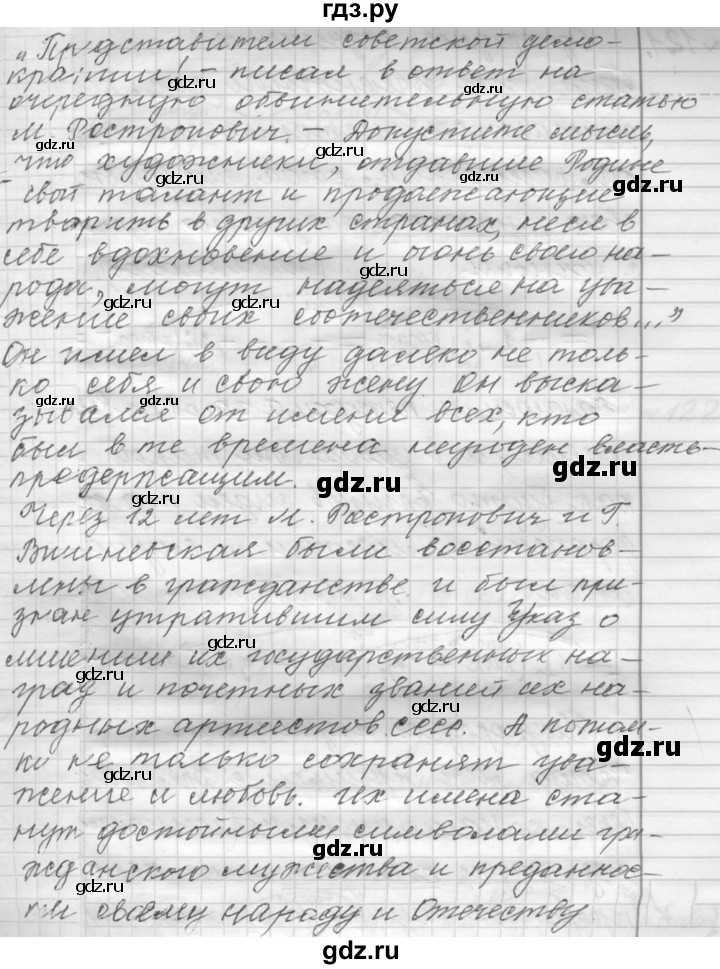 гдз.ру
„Представители советской демо-
кратии! – писал в ответ на
очередную обвинительную статью
М. Ростропович. – Допустите мысль,
что художники, отдавшие Родине
свой талант и продолжающие
творить в других странах, неся в
себе вдохновение и огонь своего на-
рода, могут надеяться на ува-
жение своих соотечественников...”
Он имел в виду далеко не толь-
ко себя и свою жену. Он выска-
зывался от имени всех, кто
был в те времена неугоден власть-
предержащим.
Через 12 лет М. Ростропович и Г.
Вишневская были восстанов-
лены в гражданстве и был при-
знан утратившим силу Указ о
лишении их государственных на-
град и почетных званий их на-
родных артистов СССР. А потом-
ки не только сохранят ува-
жение и любовь. Их имена ста-
нут достойными символами гра-
жданского мужества и преданнос-
ти своему народу и Отечеству.
gdz.ru